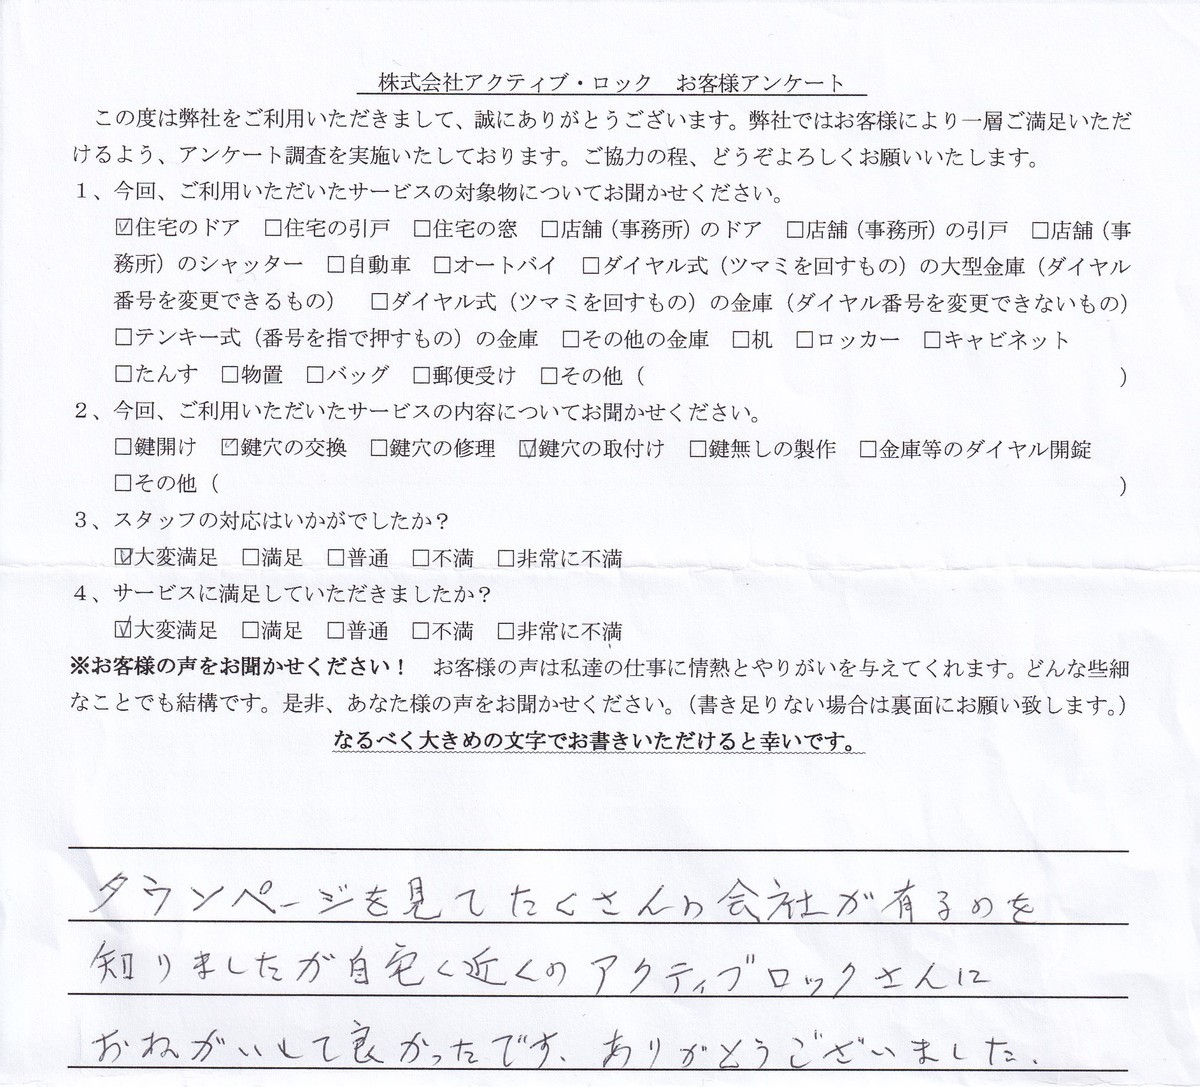 株式会社アクティブ・ロック　お客様アンケート
この度は弊社をご利用いただきまして、誠にありがとうございます。弊社ではお客様により一層ご満足いただ
けるよう、アンケート調査を実施いたしております。ご協力の程、どうぞよろしくお願いいたします。
1、今回、ご利用いただいたサービスの対象物についてお聞かせください。
☑住宅のドア　□住宅の引戸　□住宅の窓　□店舗（事務所）のドア　□店舗（事務所）の引戸　□店舗（事
務所）のシャッター　□自動車　□オートバイ　□ダイヤル式（ツマミを回すもの）の大型金庫（ダイヤル
番号を変更できるもの）　□ダイヤル式（ツマミを回すもの）の金庫（ダイヤル番号を変更できないもの）
□テンキー式（番号を指で押すもの）の金庫　□その他の金庫　□机　□ロッカー　□キャビネット
□たんす　□物置　□バッグ　□郵便受け　□その他（　）
2、今回、ご利用いただいたサービスの内容についてお聞かせください。
□鍵開け　☑鍵穴の交換　□鍵穴の修理　☑鍵穴の取付け　□鍵無しの製作　□金庫等のダイヤル開錠
□その他（　）
3、スタッフの対応はいかがでしたか？
☑大変満足　□満足　□普通　□不満　□非常に不満
4、サービスに満足していただきましたか？
☑大変満足　□満足　□普通　□不満　□非常に不満
※お客様の声をお聞かせください！　お客様の声は私達の仕事に情熱とやりがいを与えてくれます。どんな些細
なことでも結構です。是非、あなた様の声をお聞かせください。（書き足りない場合は裏面にお願い致します。）
なるべく大きめの文字でお書きいただけると幸いです。
タウンページを見てたくさんの会社が有るのを
知りましたが自宅く近くのアクティブロックさんに
おねがいして良かったです、ありがとうございました、